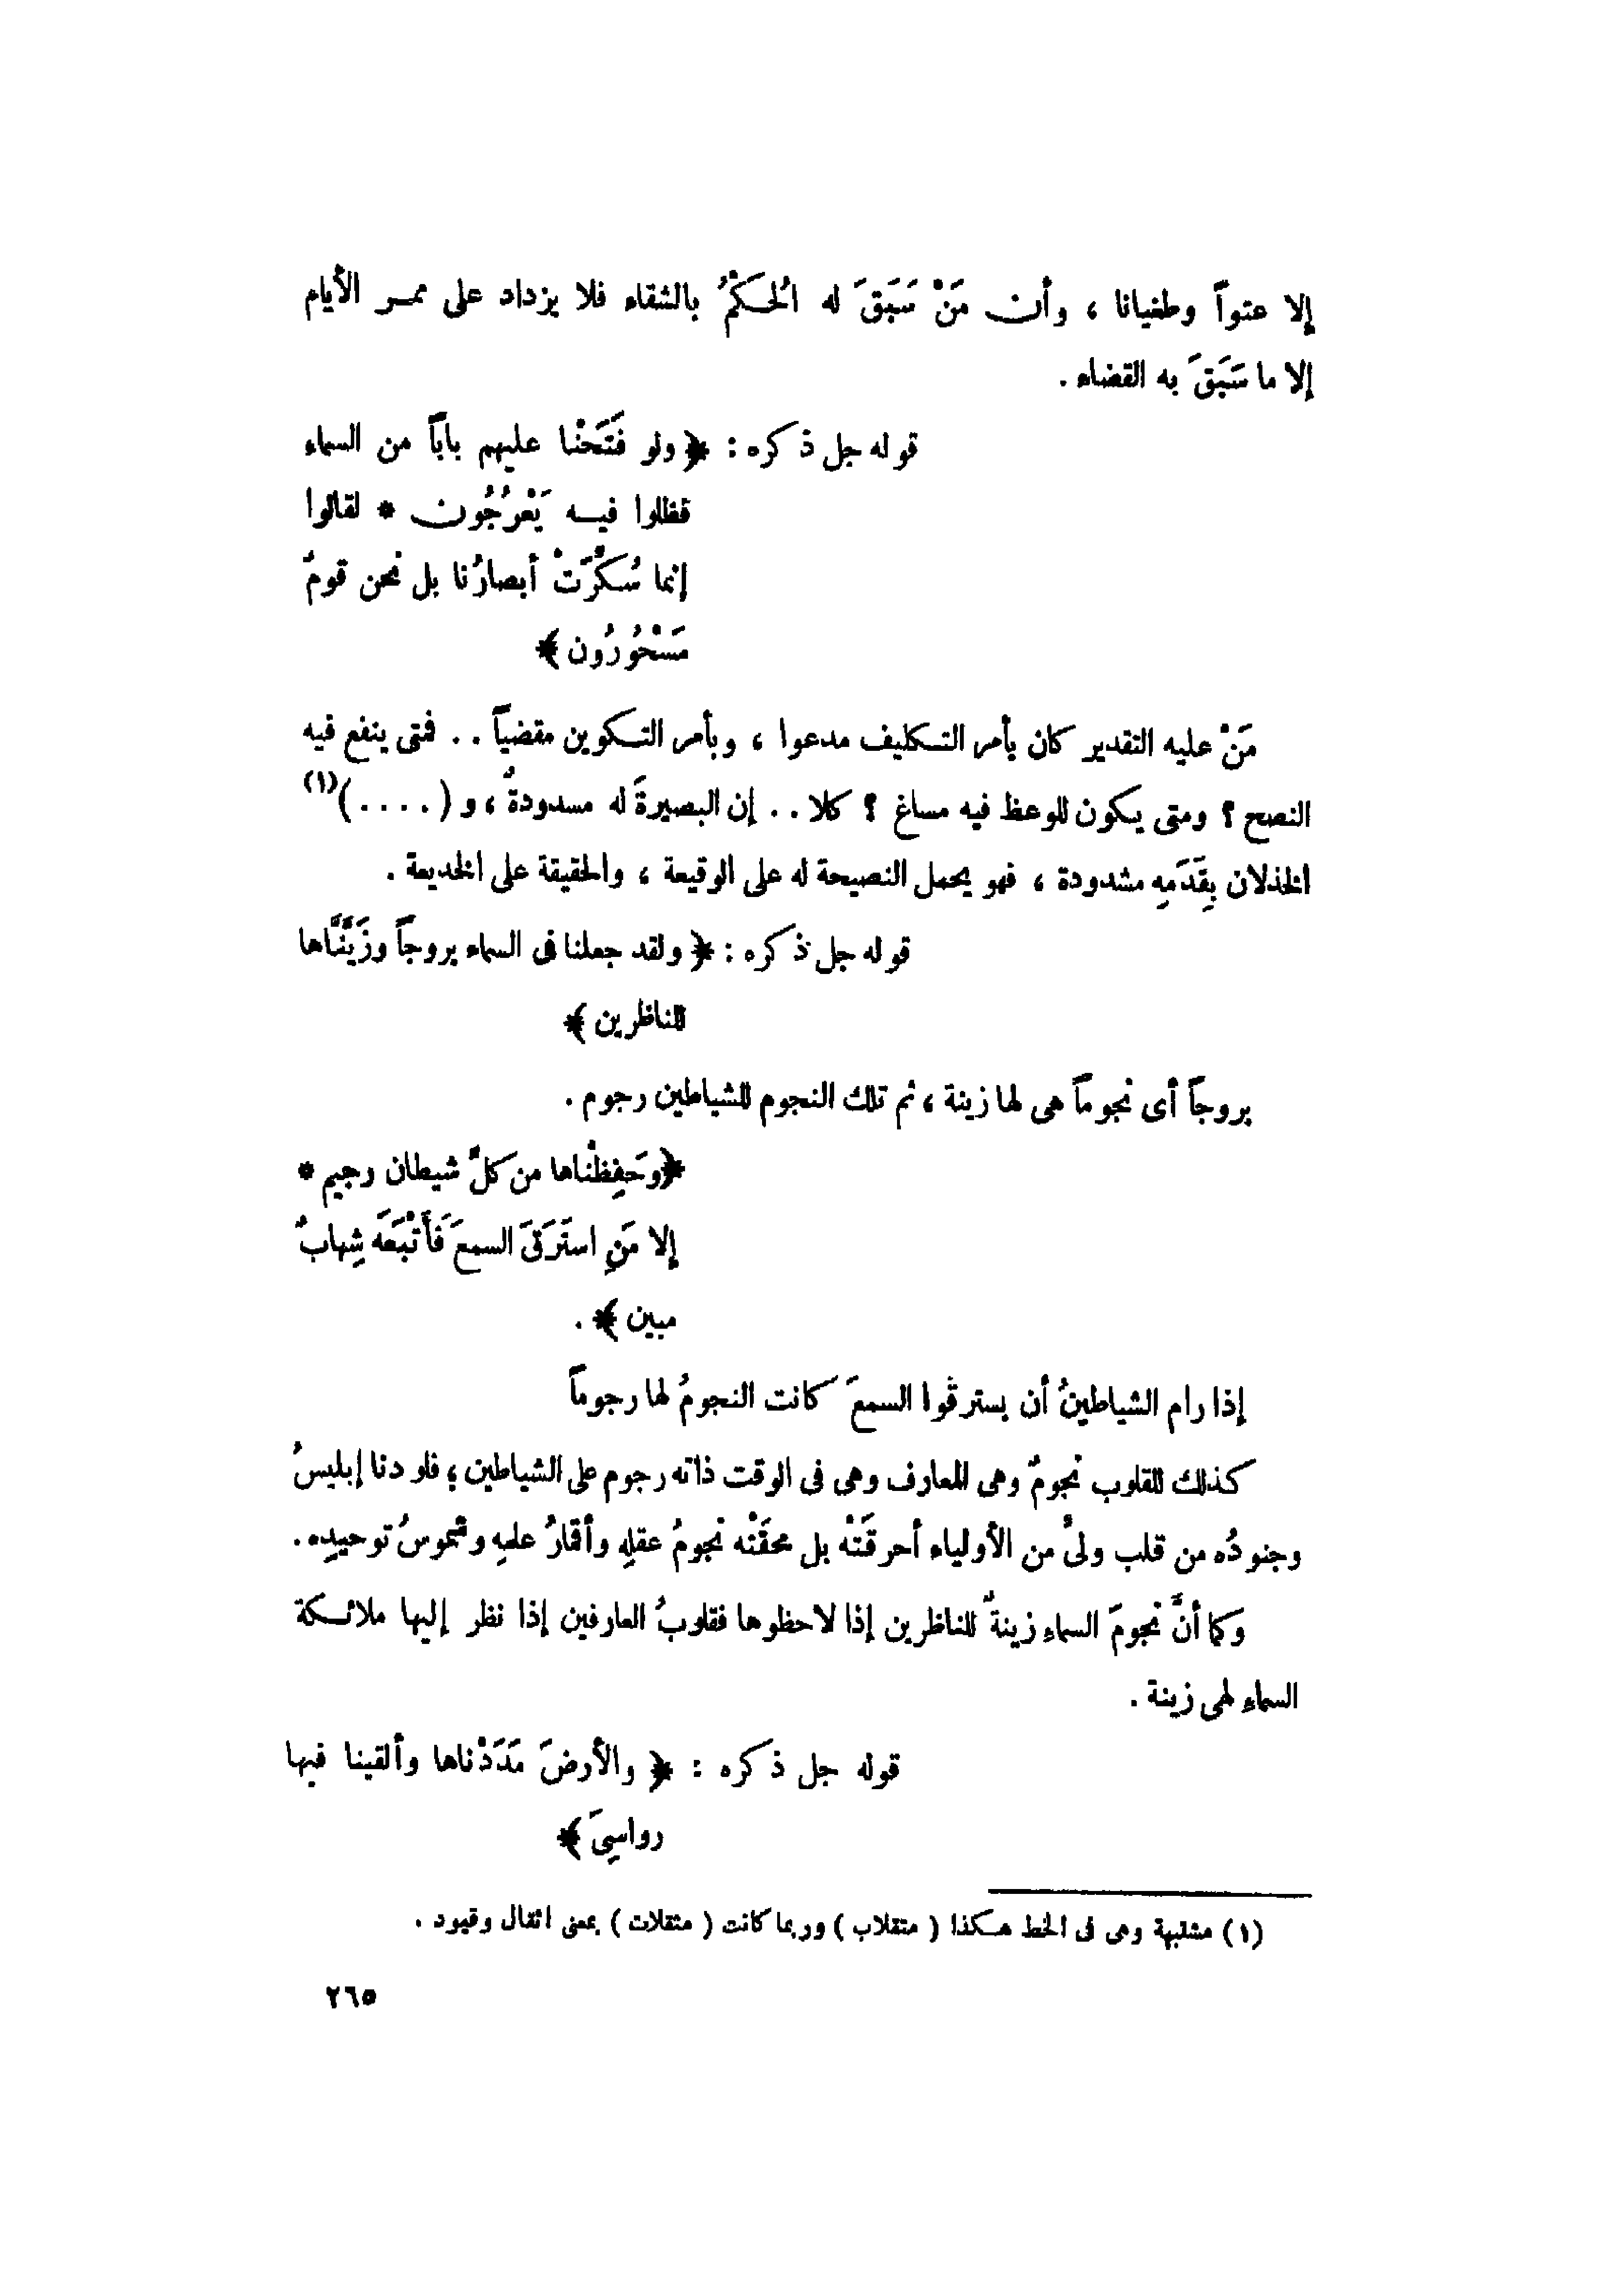 إلا عتواً وطغيانا ، وأن مَنْ سَبَقَ له الُحكْمُ بالشقاء فلا يزداد على ممر الأيام
إلا ما سَبَقَ به القضاء .
قوله جل ذكره : ﴿ ولو فَتَحْنا عليهم باباً من السماء
فظلوا فيه يَعْرُجُون * لقالوا
إنما سُكِّرَتْ أبصارُنا بل نحن قومٌ
مَسْحُورُون ﴾
مَنْ عليه التقدير كان بأمر التكليف مدعوا ، وبأمر التكوين مقضياً .. فمتى ينفع فيه
النصح ؟ ومتى يكون للوعظ فيه مساغ ؟ كلا .. إن البصيرةَ له مسدودةٌ ، و ( .... )(١)
الخذلان بِقَدَمِه مشدودة ، فهو يحمل النصيحة له على الوقيعة ، والحقيقة على الخديعة .
قوله جل ذكره : ﴿ ولقد جعلنا فى السماء بروجاً وزَيَّنَّاها
للناظرين ﴾
بروجاً أى نجوماً هى لها زينة ، ثم تلك النجوم للشياطين رجوم .
﴿وحَفِظْناها من كلِّ شيطان رجيم *
إلا مَنِ استَرَقَ السمعَ فَأَتْبَعَه شِهابٌ
مبين ﴾ .
إذا رام الشياطينُ أن يسترقوا السمعَ كانت النجومُ لها رجوماً
كذلك للقلوب نجومٌ وهى المعارف وهى فى الوقت ذاته رجوم على الشياطين ؛ فلو دنا إبليسُ
وجنودُه من قلب ولىٍّ من الأولياء أحرقَتْه بل محقَتْه نجومُ عقلِه وأقمارُ علمِه وشموسُ توحيدِه .
وكما أنَّ نجومَ السماءِ زينةٌ للناظرين إذا لاحظوها فقلوبُ العارفين إذا نظر إليها ملائكة
السماءِ لهى زينة .
قوله جل ذكره : ﴿ والأرضَ مَدَدْناها وألقينا فيها
رواسِىَ ﴾
(١) مشتبهة وهى فى الخط هكذا ( متقلاب ) وربما كانت ( مثقلات ) بمعنى اثقال وقيود .
٢٦٥